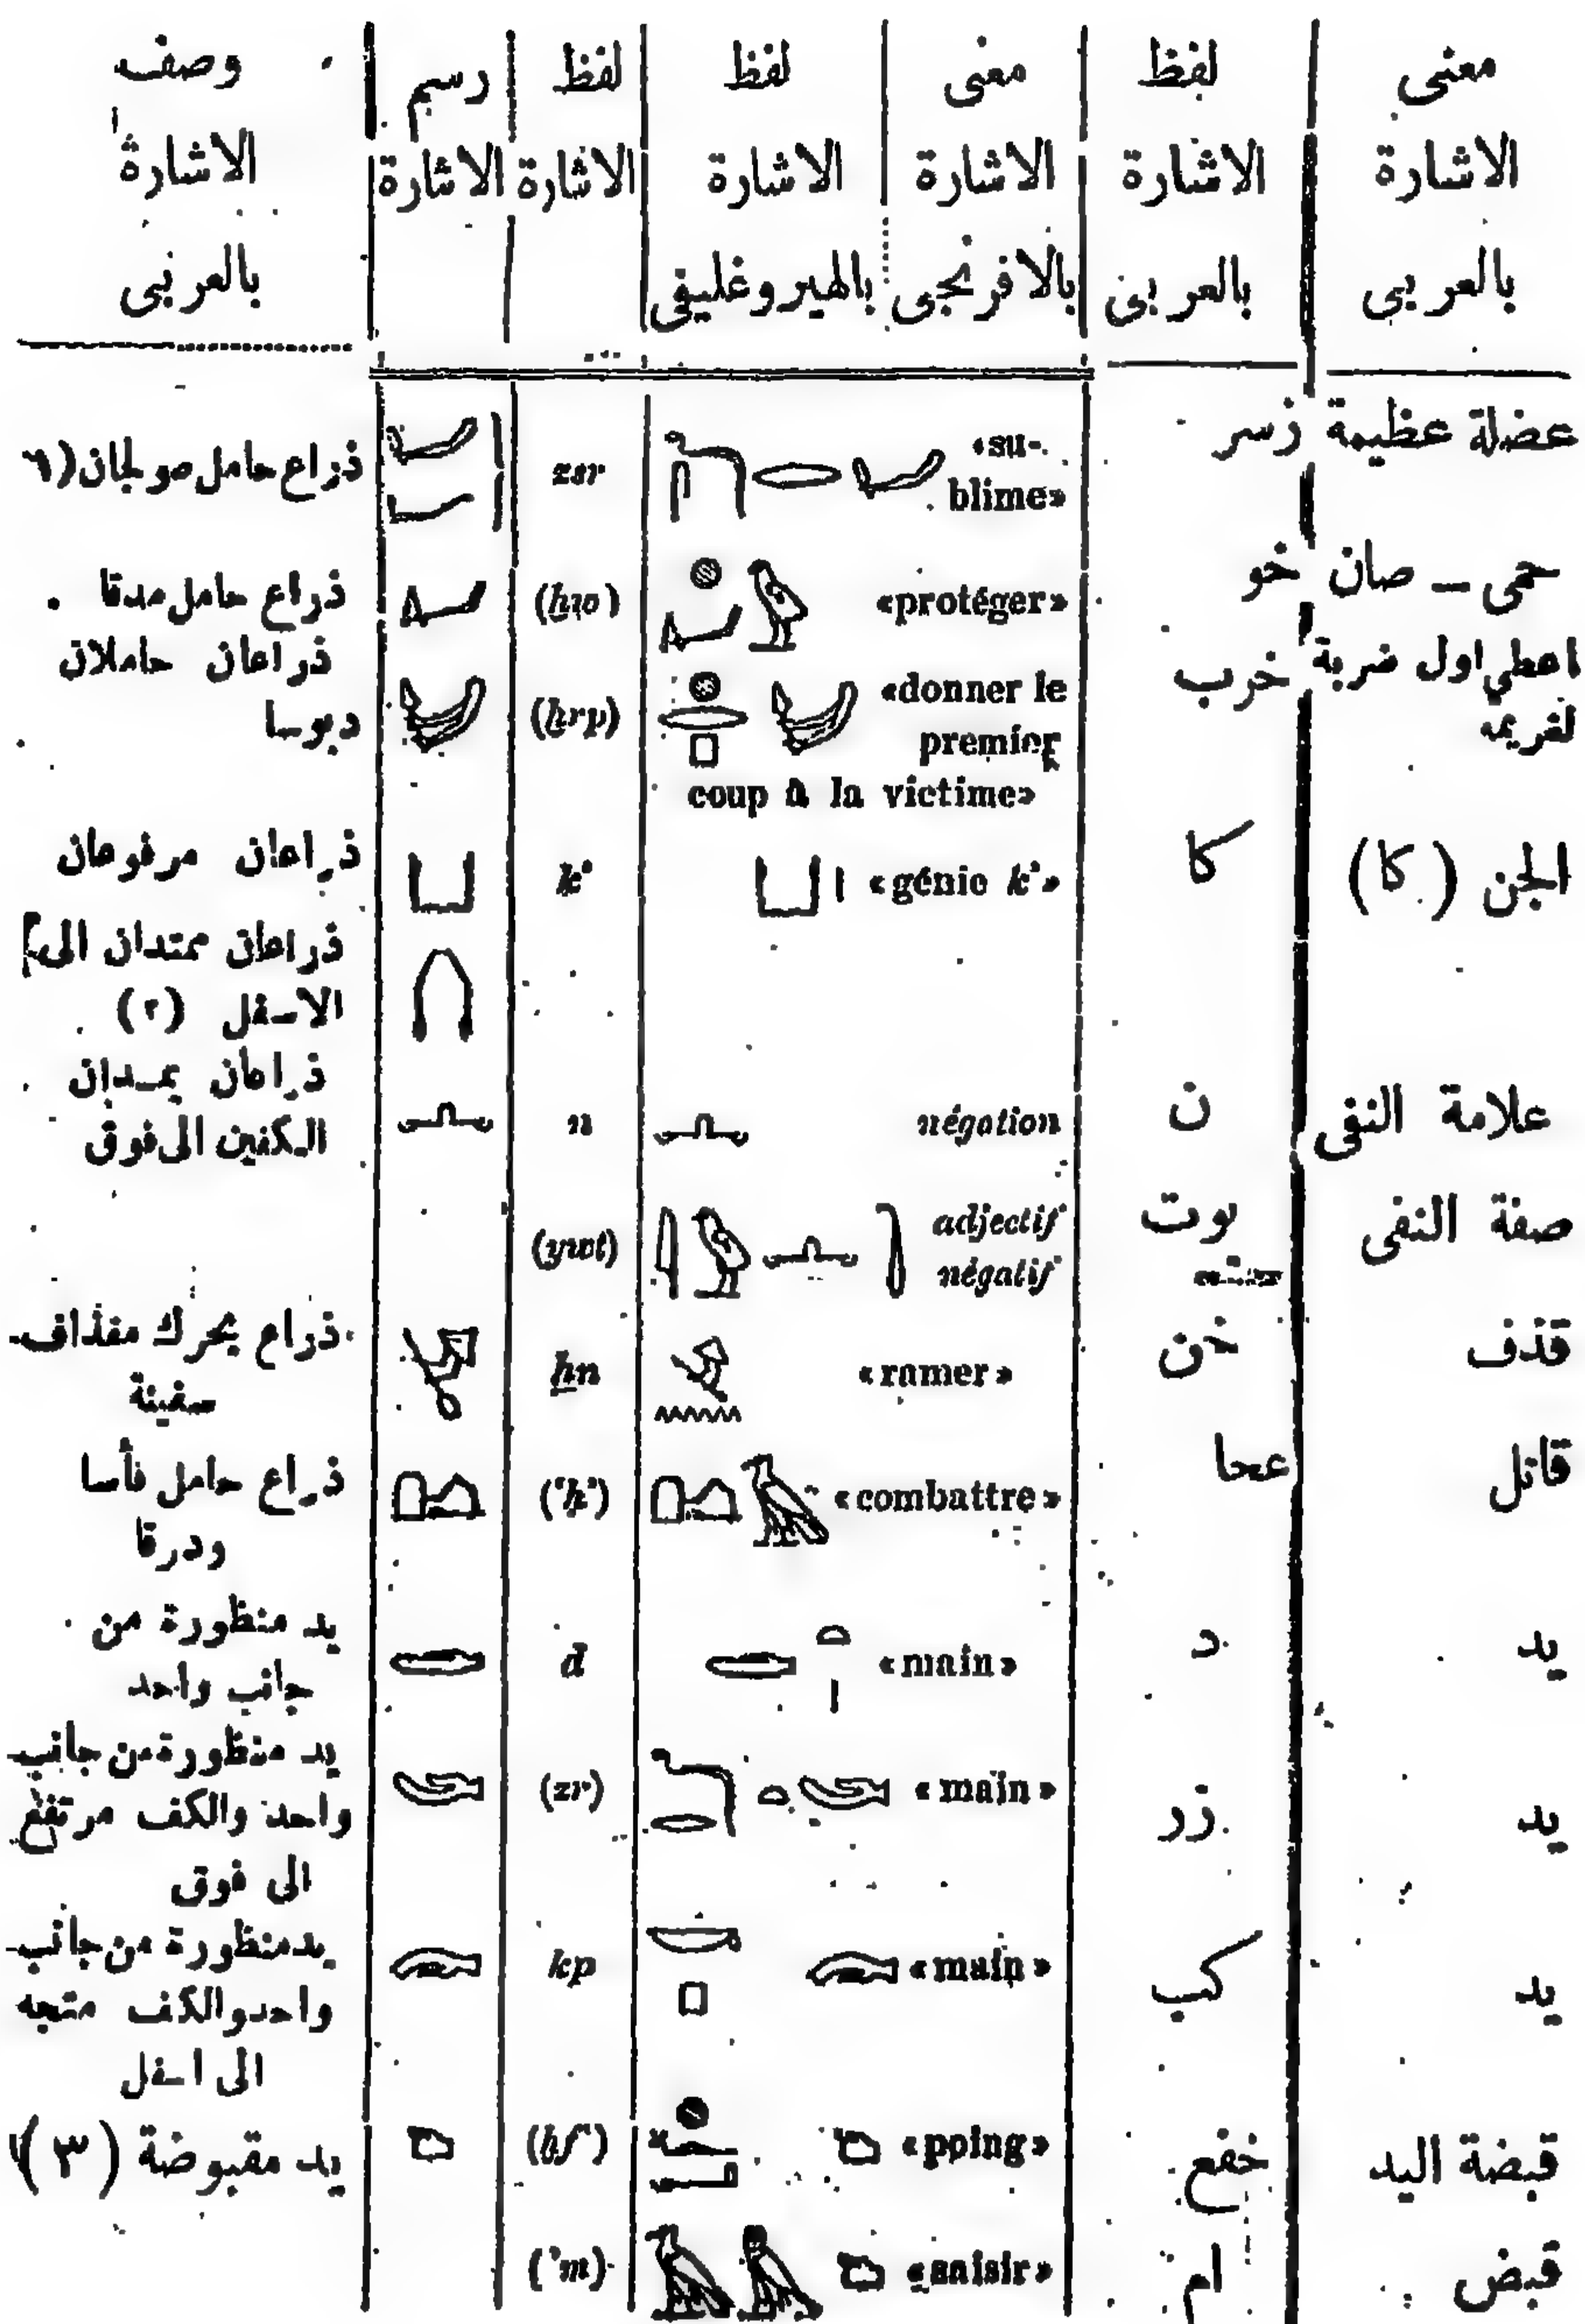 معنى الاشارة بالعربى | لفظ الاشارة بالعربى | معنى الاشارة بالافرنجى | لفظ الاشارة بالهيروغليفى | لفظ الاشارة | رسم الاشارة | وصف الاشارة بالعربى
عضلة عظيمة | زسر | «su-blime» | zsr | ذراع حامل صولجان
حمى — صان | خو | «protéger» | (ḫw) | ذراع حامل مدقا
اعطي اول ضربة لغريمه | خرب | «donner le premier coup à la victime» | (ḫrp) | ذراعان حاملان دبوسا
الجن (كا) | كا | «génie k’» | k’ | ذراعان مرفوعان
ذراعان ممتدان الى الاسفل (٢)
علامة النفى | ن | négation | n | ذراعان يمدان الكفين الى فوق
صفة النفى | يوت | adjectif négatif | (ywt)
قذف | خن | «ramer» | ẖn | ذراع يحرك مقذاف سفينة
قاتل | عحا | «combattre» | (‘ḥ’) | ذراع حامل فأسا ودرقا
يد | د | «main» | d | يد منظورة من جانب واحد
يد | زر | «main» | (zr) | يد منظورة من جانب واحد والكف مرتفع الى فوق
يد | كب | «main» | kp | يد منظورة من جانب واحد والكف متجه الى اسفل
قبضة اليد | خفع | «poing» | (ḫf‘) | يد مقبوضة (٣)
قبض | ام | «saisir» | (’m)